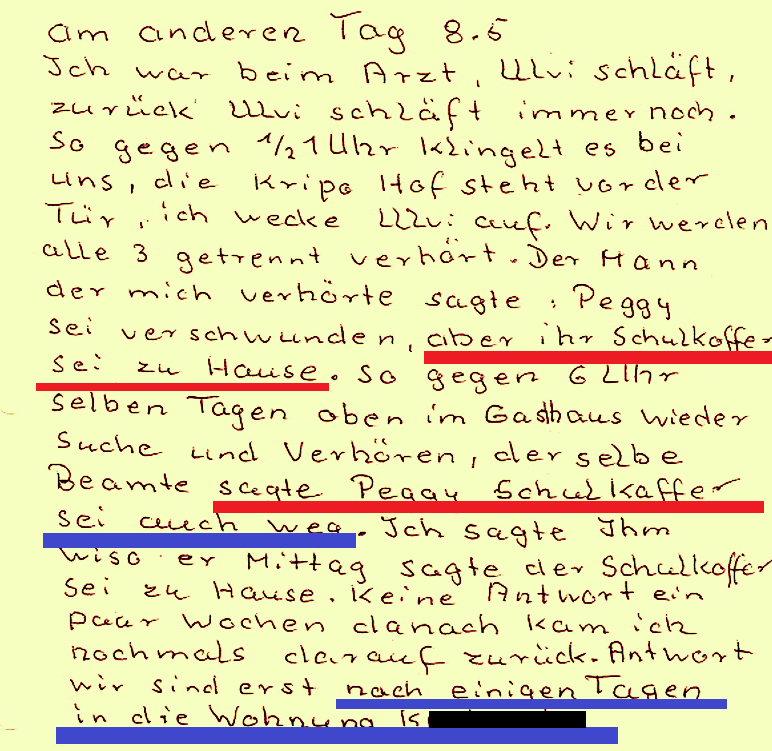 am anderen Tag 8.5
Ich war beim Arzt, Ulvi schläft,
zurück Ulvi schläft immernoch.
So gegen 1/2 1 Uhr klingelt es bei
uns, die Kripo Hof steht vor der
Tür, ich wecke Ulvi auf. Wir werden
alle 3 getrennt verhört. Der Mann
der mich verhörte sagte: Peggy
sei verschwunden, aber ihr Schulkoffer
sei zu Hause. So gegen 6 Uhr
selben Tagen oben im Gasthaus wieder
Suche und Verhören, der selbe
Beamte sagte Peggy Schulkaffer
sei auch weg. Ich sagte Ihm
wiso er Mittag sagte der Schulkoffer
sei zu Hause. Keine Antwort ein
paar Wochen danach kam ich
nochmals darauf zurück. Antwort
wir sind erst nach einigen Tagen
in die Wohnung K